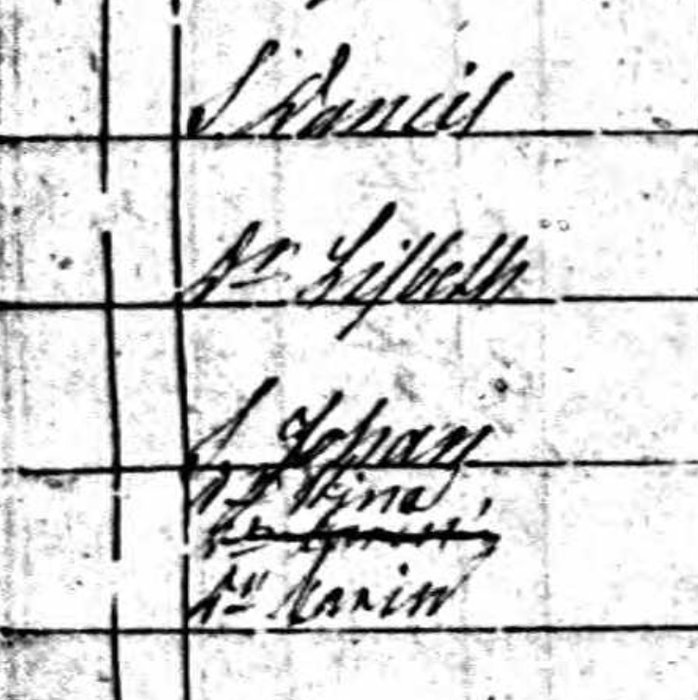 S. Daniel
Dr. Lisbeth
S. Johan
Dr. Stina
Dr. Karin